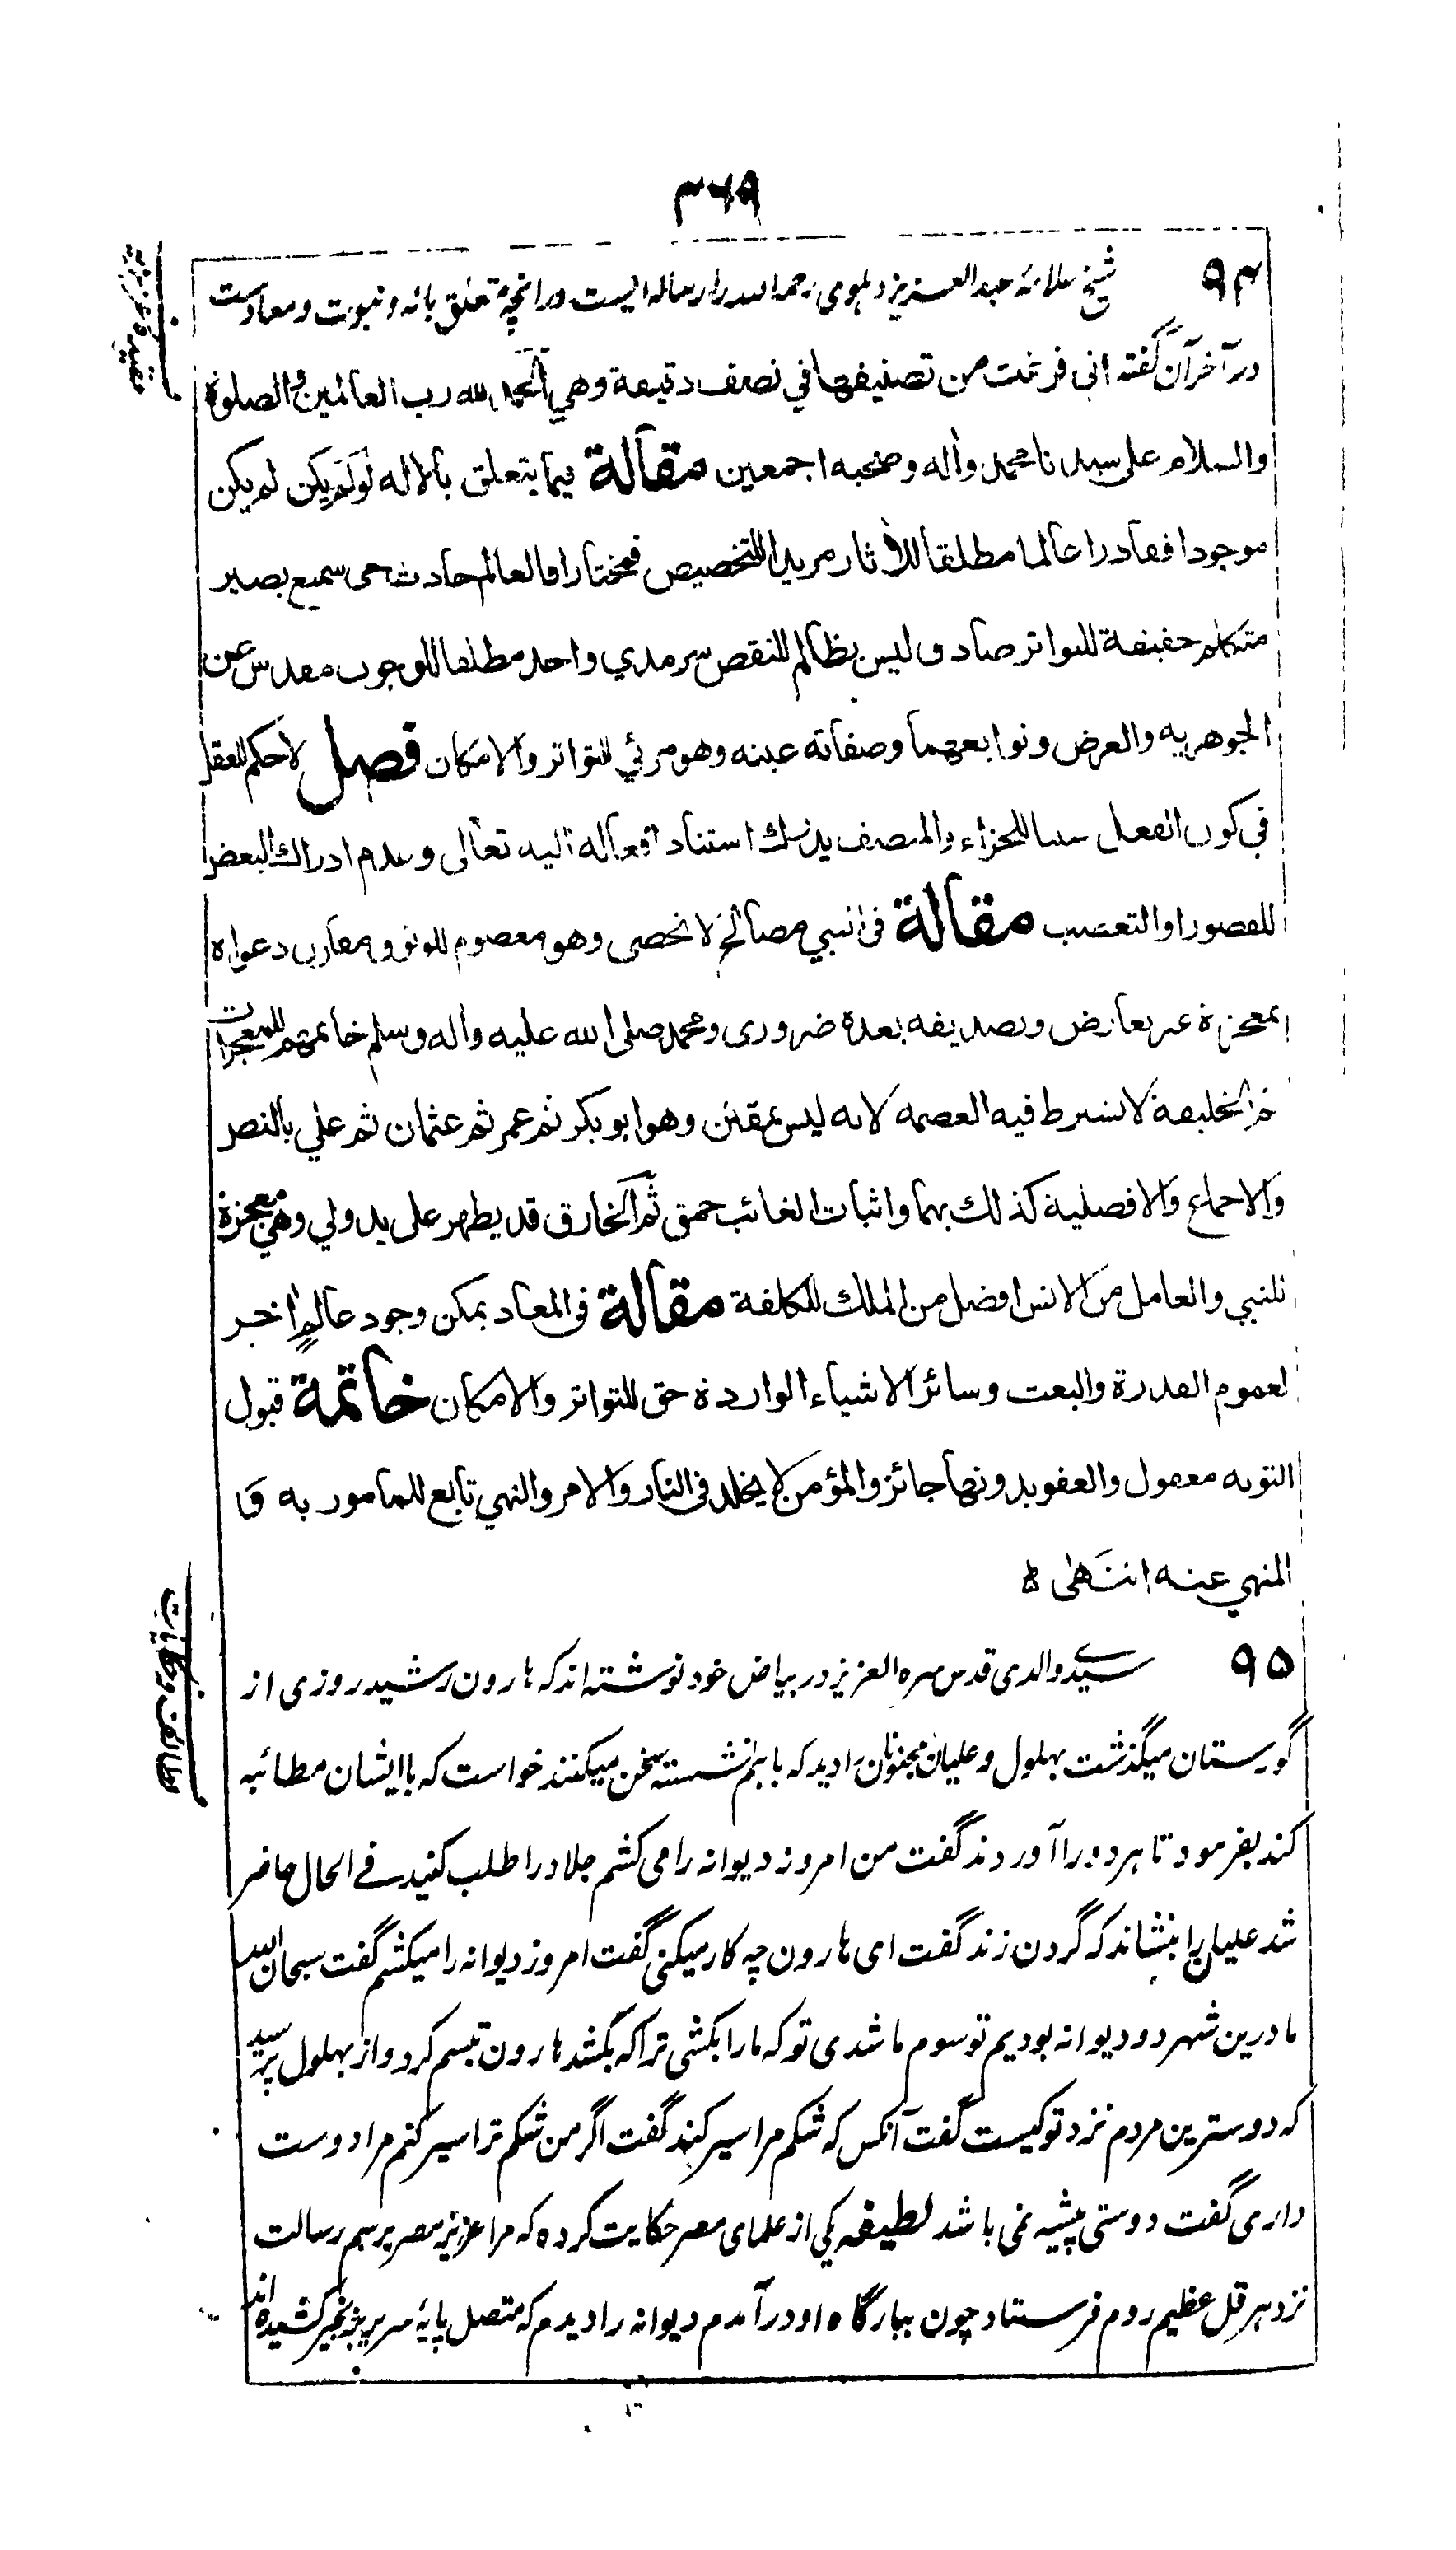 ۳۶۹
۹۴ شیخ علامه عبد العزیز دهلوی رحمه الله را رساله ایست در انچه تعلق باله و نبوت و معاد ست
در آخر آن گفته انی فرغت من تصنیفها في نصف دقیقة وهي الحمد لله رب العالمین والصلوة
والسلام علی سیدنا محمد وآله وصحبه اجمعین مقالة فیما یتعلق بالاله لو لم یکن لم یکن
موجودا فقادرا عالما مطلقا للآثار مریدا للتخصیص فمختارا فالعالم حادث حی سمیع بصیر
متکلم حقیقة للتواتر صادق لیس بظالم للنقص سرمدي واحد مطلقا للوجوب مقدس عن
الجوهریه والعرض وتوابعهما وصفاته عینه وهو مرئي للتواتر والامکان فصل لا حکم للعقل
في کون الفعل سببا للجزاء والمتصف بذلك استناد افعاله الیه تعالی وعدم ادراك البعض
للقصور او التعصب مقالة فی النبي مصالح لا تحصی وهو معصوم للوثوق ومقارن دعواه
بمعجزة عن تعارض وتصدیقه بعده ضروری ومحمد صلی الله علیه وآله وسلم خاتمهم للمعجزات
ثم الخلیفة لا تشترط فیه العصمه لانه لیس بمقنن وهو ابو بکر ثم عمر ثم عثمان ثم علي بالنص
والاجماع والافضلیة کذلك بهما واثبات الغائب حمق ثم الخارق قد یظهر علی ید ولي وهي معجزة
للنبي والعامل من الانس افضل من الملك للکلفة مقالة فی المعاد یمکن وجود عالم اخر
لعموم القدرة والبعث وسائر الاشیاء الواردة حق للتواتر والامکان خاتمة قبول
التوبه معمول والعفو بدونها جائز والمؤمن لا یخلد فی النار والامر والنهي تابع للمامور به و
المنهي عنه انتهی
۹۵ سیدی والدی قدس سره العزیز در بیاض خود نوشته اند که هارون رشید روزی از
گورستان میگذشت بهلول و علیان مجنونان را دید که باهم نشسته سخن میکنند خواست که با ایشان مطائبه
کند بفرمود تا هر دو را آوردند گفت من امروز دیوانه را می کشم جلاد را طلب کنید فی الحال حاضر
شد علیان را بنشاند که گردن زند گفت ای هارون چه کار میکنی گفت امروز دیوانه را میکشم گفت سبحان الله
ما درین شهر دو دیوانه بودیم تو سوم ما شدی تو که ما را بکشی ترا که بکشد هارون تبسم کرد و از بهلول پرسید
که دوسترین مردم نزد تو کیست گفت آنکس که شکم مرا سیر کند گفت اگر من شکم ترا سیر کنم مرا دوست
داری گفت دوستی پیشیه نمی باشد لطیفه یکی از علمای مصر حکایت کرده که مرا عزیز مصر برسم رسالت
نزد هرقل عظیم روم فرستاد چون ببارگاه او در آمدم دیوانه را دیدم که متصل پایهٔ سریر بزنجیر کشیده اند